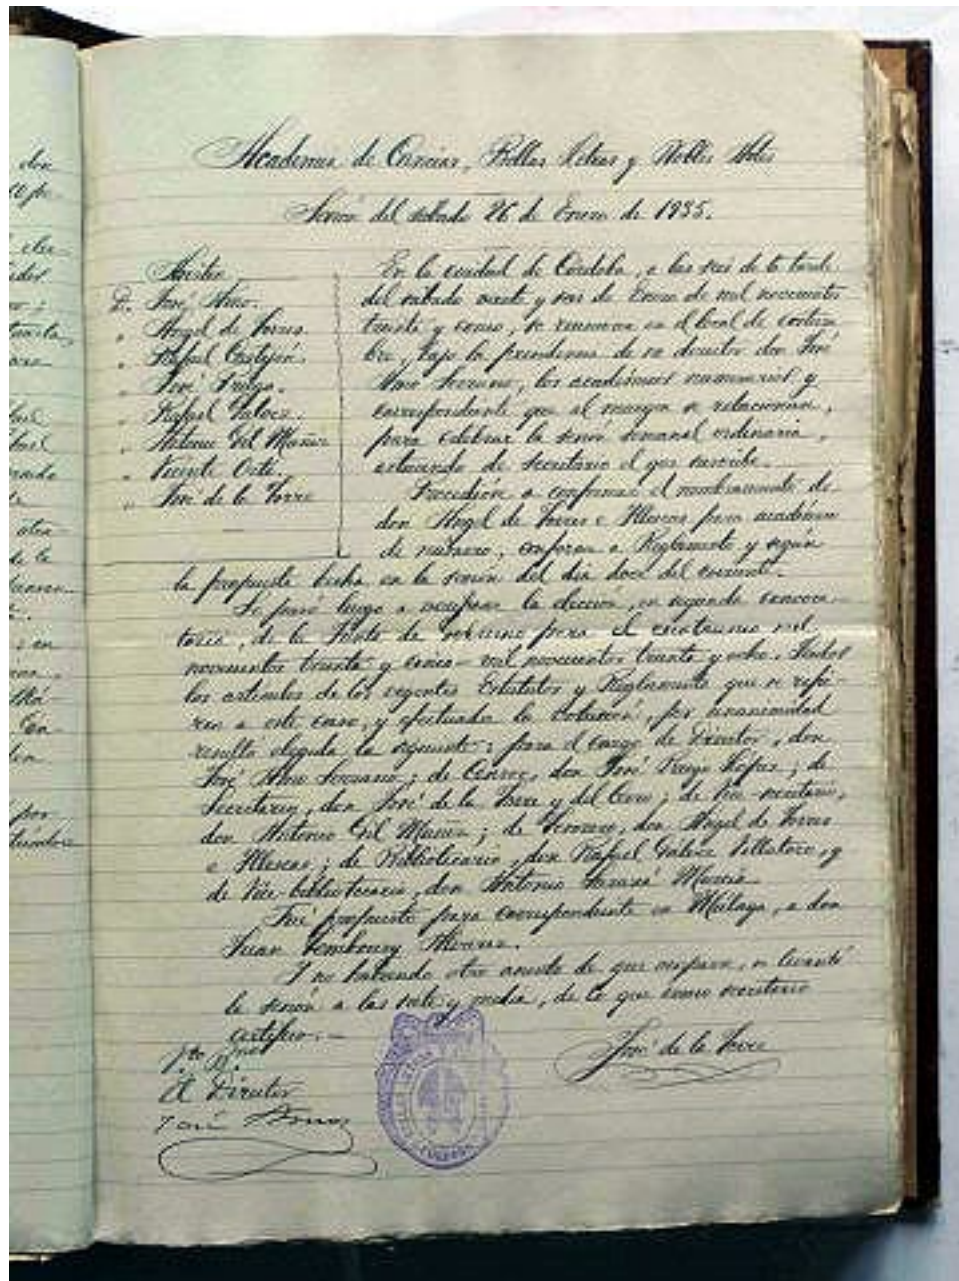 Academia de Ciencias, Bellas Letras y Nobles Artes
Sesión del sábado 26 de Enero de 1935.
Asisten
D. José Amo.
" Angel de Torres
" Rafael Castejón.
" José Priego.
" Rafael Gálvez.
" Antonio Gil Muñiz
" Vicente Orti.
" José de la Torre
En la ciudad de Córdoba, a las seis de la tarde
del sábado veinte y seis de Enero de mil novecientos
treinta y cinco, se reunieron en el local de costum-
bre, bajo la presidencia de su director don José
Amo Serrano, los académicos numerarios y
correspondiente que al margen se relacionan,
para celebrar la sesión semanal ordinaria,
actuando de secretario el que suscribe.
Procedióse a confirmar el nombramiento de
don Angel de Torres e Illescas para académico
de número, conforme a Reglamento y según
la propuesta hecha en la sesión del día doce del corriente.
Se pasó luego a verificar la elección, en segunda convoca-
toria, de la Junta de Gobierno para el cuatrienio mil
novecientos treinta y cinco - mil novecientos treinta y ocho. Leídos
los artículos de los vigentes Estatutos y Reglamento que se refie-
ren a este caso, y efectuada la votación, por unanimidad
resultó elegida la siguiente: para el cargo de Director, don
José Amo Serrano; de Censor, don José Priego López; de
Secretario, don José de la Torre y del Cerro; de Vice-secretario,
don Antonio Gil Muñiz; de Tesorero, don Angel de Torres
e Illescas; de Bibliotecario, don Rafael Gálvez Villatoro, y
de Vice-bibliotecario, don Antonio Sarazá Murcia.
Fué propuesto para correspondiente en Málaga, a don
Juan Temboury Alvarez.
Y no habiendo otro asunto de que ocuparse, se levantó
la sesión a las siete y media, de lo que como secretario
certifico.-
Vto. Bno.
El Director
José Amo
José de la Torre
CORDOBA